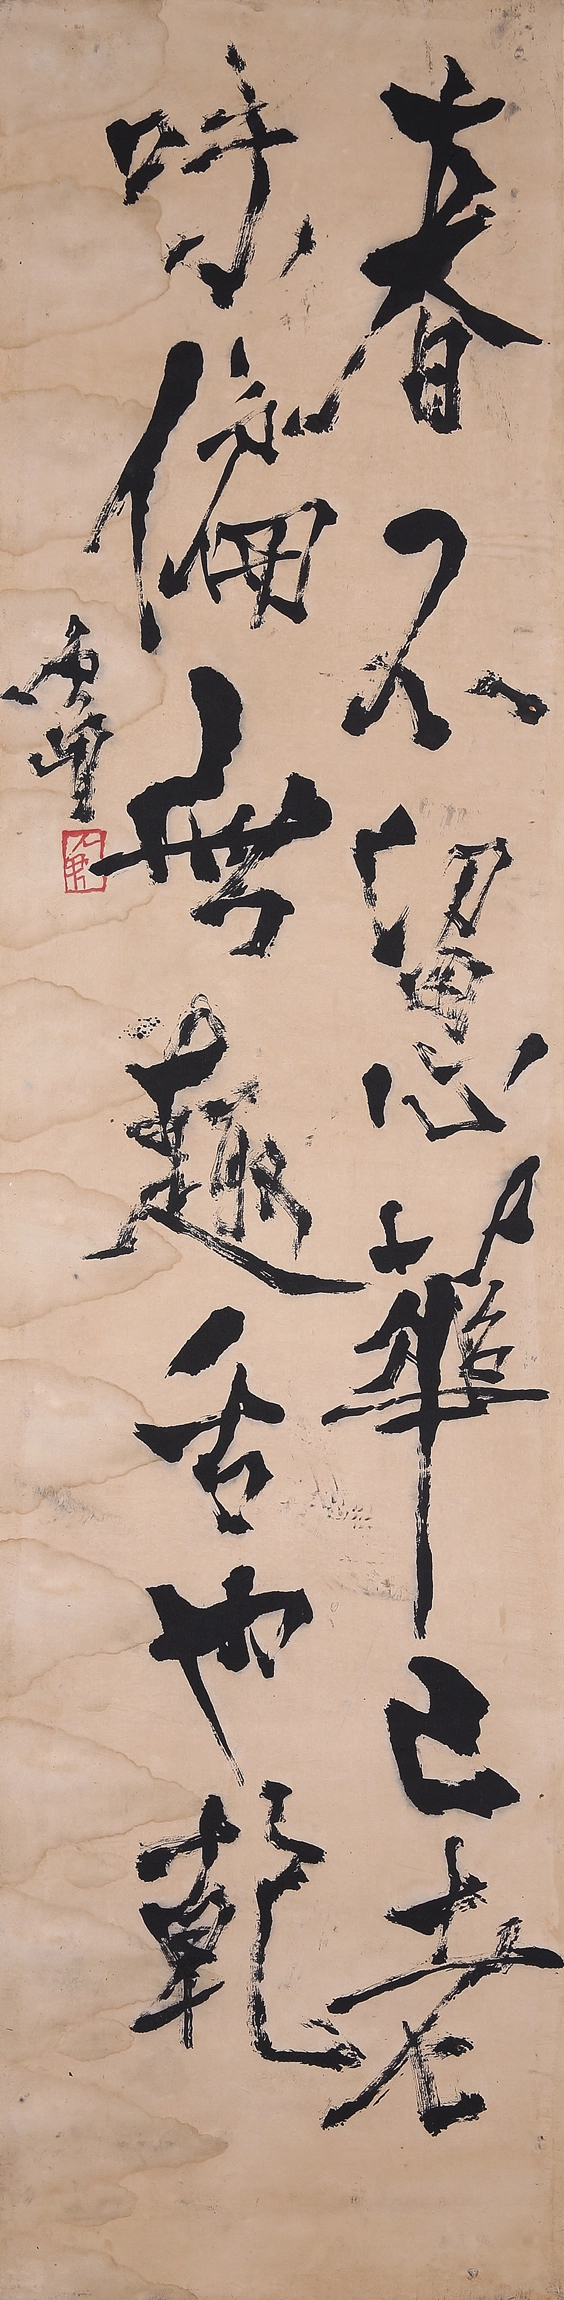 春不留心華已老
味偏無趣舌也乾